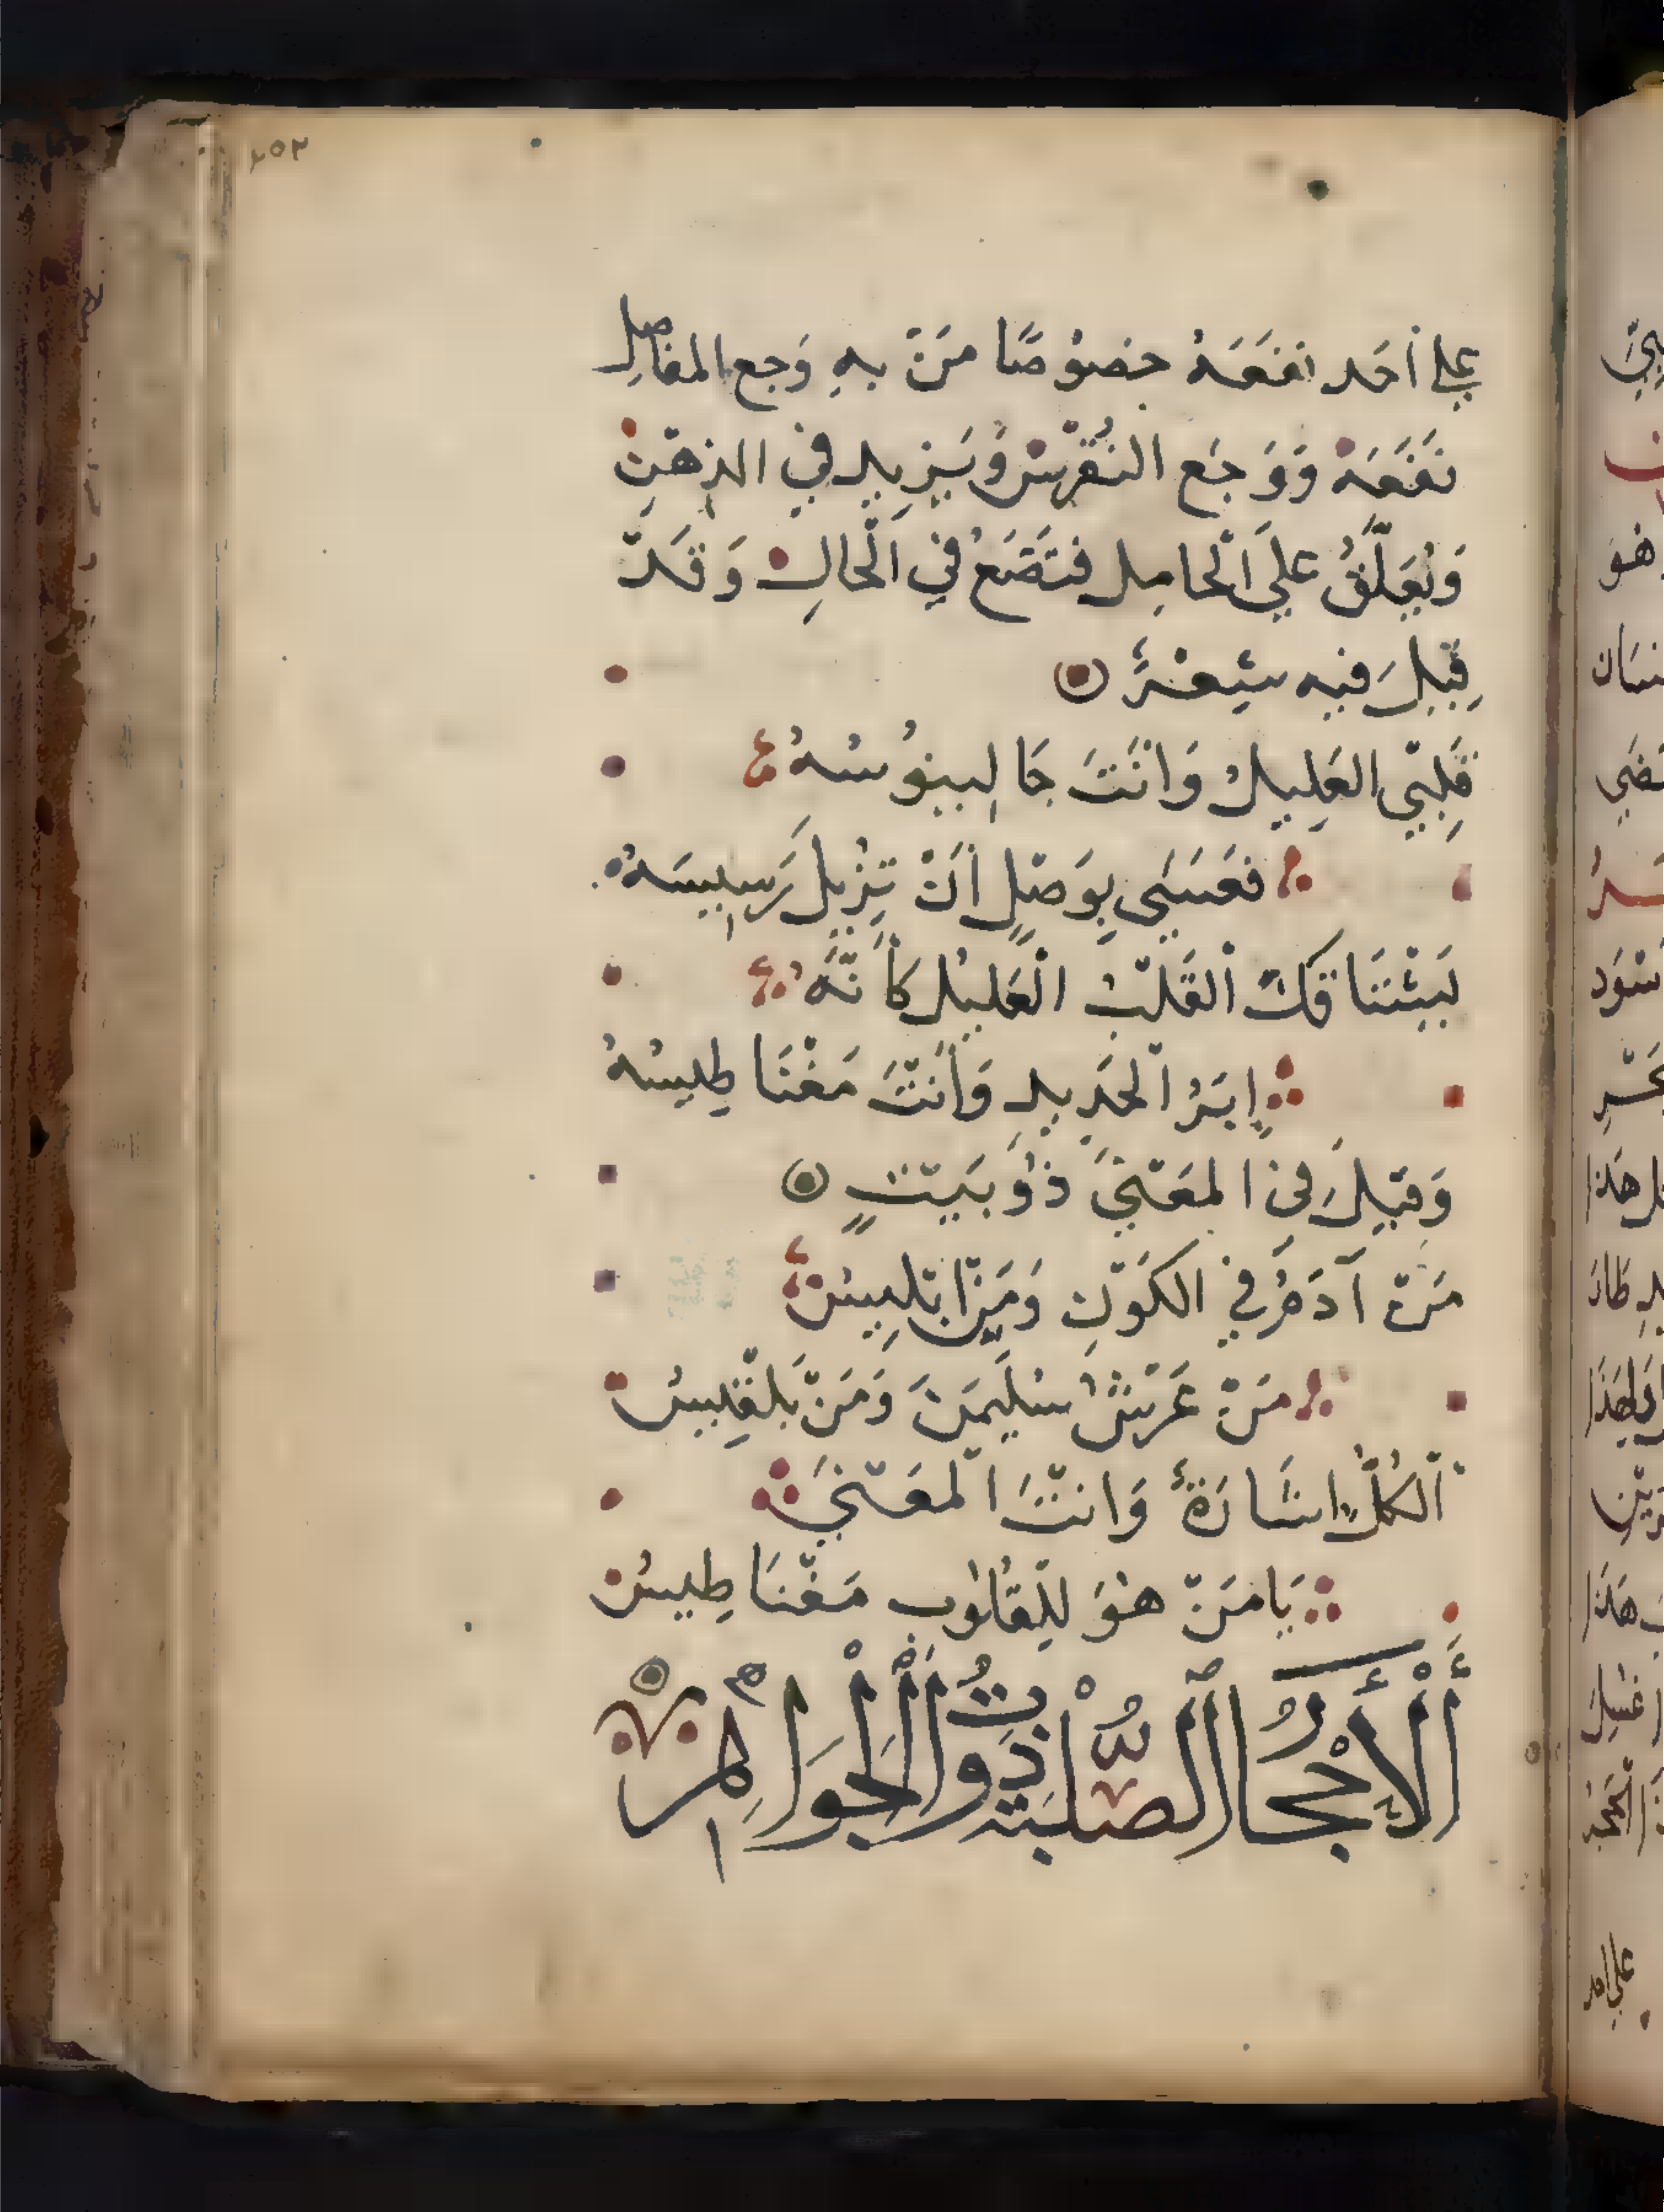 ٢٥٣
علي أحَد نفَعَهُ خصُوصًا مَنْ بهِ وَجع المفاصِل
نفَعَهُ وَوَجَع النُقْرِسْ وَيَزِيد في الذِهْنِ
وَيُعَلَّقُ عَلَي اَلْحامِل فتَضَعُ في اَلْحالِ وَقَدْ
قِيلَ فيه شِعْرٌ
قَلبْي العَلِيلُ وَانْتَ جَالينوُسُهُ
فعَسَى بِوَصْلٍ أنْ تِزُيلَ رَسِيسَهُ
يَشْتَاقُكَ اْلقَلْبُ اْلعَليُل كَأنَّهُ
إبَرُ اْلحَدِيدِ وَأنتَْ مَغْنَاطِيسُهُ
وَقيِلَ في المعَنْيَ ذُو بَيَتْ
مَنْ آدَمُ في الكَوْنِ وَمَنْ اِبْلِيسُ
مَنْ عَرْشُ سُليَمنَ وَمَنْ بَلْقِيسُ
اَلكُلُّ اشَارَةٌ وَانْتَ اْلمعَنْيَ
يَامَنْ هُوَ لِلْقُلوُب مَغْنَاطِيسُ
اَلْأَحْجَارُ الصُّلْبَةُ ذَوَاتُ الْجَوَاهِرْ